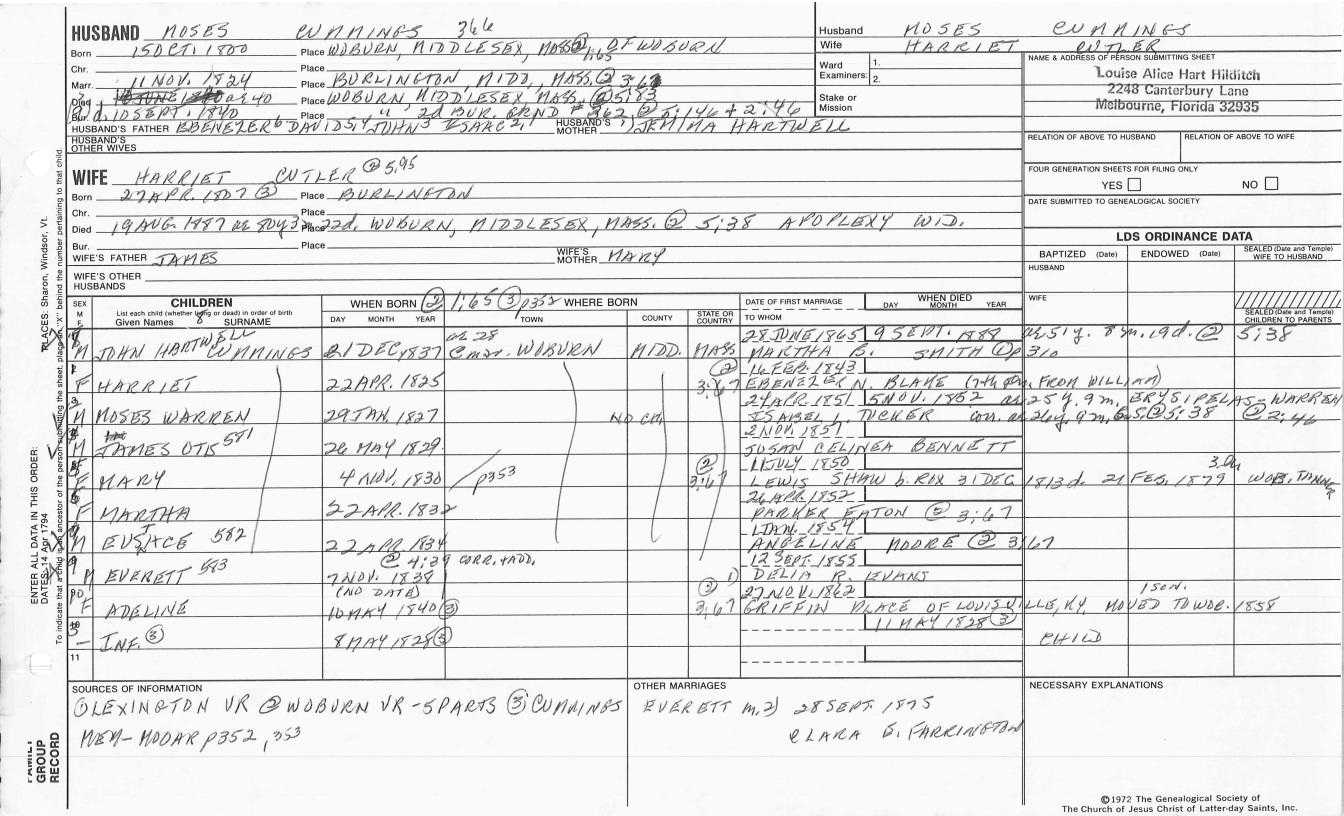 HUSBAND MOSES CUMMINGS 366
Born 15 OCT. 1800 Place WOBURN, MIDDLESEX, MASS ② OF WOBURN
1:65
Chr. Place
Marr. 11 NOV. 1824 Place BURLINGTON, MIDD., MASS. ② 3:67
Died ae 40 Place WOBURN, MIDDLESEX, MASS. ② 5:83
Bur. d. 10 SEPT. 1840 Place " 2d BUR. GRND # 362 ② 5:146 + 2:46
HUSBAND'S FATHER EBENEZER 6 DAVID 5,4 JOHN 3 ISAAC 2,1 HUSBAND'S MOTHER 1) JEMIMA HARTWELL
HUSBAND'S OTHER WIVES
WIFE HARRIET CUTLER ② 5:95
Born 27 APR. 1807 ③ Place BURLINGTON
Chr. Place
Died 19 AUG. 1887 ae 80y 3m 22d. Place WOBURN, MIDDLESEX, MASS. ② 5:38 APOPLEXY WID.
Bur. Place
WIFE'S FATHER JAMES WIFE'S MOTHER MARY
WIFE'S OTHER HUSBANDS
Husband MOSES CUMMINGS
Wife HARRIET CUTLER
Ward Examiners: 1.
2.
Stake or Mission
NAME & ADDRESS OF PERSON SUBMITTING SHEET
Louise Alice Hart Hilditch
2248 Canterbury Lane
Melbourne, Florida 32935
RELATION OF ABOVE TO HUSBAND RELATION OF ABOVE TO WIFE
FOUR GENERATION SHEETS FOR FILING ONLY
YES NO
DATE SUBMITTED TO GENEALOGICAL SOCIETY
LDS ORDINANCE DATA
BAPTIZED (Date) ENDOWED (Date) SEALED (Date and Temple) WIFE TO HUSBAND
HUSBAND
WIFE
SEALED (Date and Temple) CHILDREN TO PARENTS
SEX M F
CHILDREN
List each child (whether living or dead) in order of birth
Given Names SURNAME
WHEN BORN ② 1:65 ③ p352 WHERE BORN
DAY MONTH YEAR TOWN COUNTY STATE OR COUNTRY
DATE OF FIRST MARRIAGE
TO WHOM
WHEN DIED
DAY MONTH YEAR
M JOHN HARTWELL CUMMINGS 31 DEC 1837 ae 28 WOBURN MIDD. MASS 28 JUNE 1865 9 SEPT. 1888 ae 51y. 8m. 19d. ② 5:38
MARTHA B. SMITH ② p310
F HARRIET 22 APR. 1825 ② 3:67 16 FEB. 1843
EBENEZER N. BLAKE (7th FROM WILLIAM)
M MOSES WARREN 29 JAN. 1827 NO CH. 24 APR. 1851 5 NOV. 1852 ae 25y. 9m. ERYSIPELAS - WARREN
ISABEL L. TUCKER ② 5:38 ② 2:46
M JAMES OTIS 581 26 MAY 1829 2 NOV. 1857
SUSAN CELINEA BENNETT
F MARY 4 NOV. 1830 p353 ② 3:67 11 JULY 1850
LEWIS SHAW b. ROX 31 DEC 1813 d. 21 FEB. 1879 WOB. TANNER
F MARTHA 22 APR. 1832 26 APR. 1852
PARKER EATON ② 3:67
M EUSTACE 582 22 APR. 1834 1 JAN. 1854
ANGELINE MOORE ② 3:67
M EVERETT 583 ② 4:39 CORR. + ADD. 12 SEPT. 1855
7 NOV. 1838 1) DELIA R. EVANS
(NO DATE)
F ADELINE 10 MAY 1840 ③ ② 3:67 27 NOV. 1862 1 SON.
GRIFFIN PLACE OF LOUISVILLE, KY. MOVED TO WOB. 1858
- INF. ③ 8 MAY 1828 ③ 11 MAY 1828 ③ CHILD
11
SOURCES OF INFORMATION
① LEXINGTON VR ② WOBURN VR - 5 PARTS ③ CUMMINGS
MEM - MOOAR p352, 353
OTHER MARRIAGES
EVERETT m. 2) 28 SEPT. 1875
CLARA E. FARRINGTON
NECESSARY EXPLANATIONS
©1972 The Genealogical Society of
The Church of Jesus Christ of Latter-day Saints, Inc.
ENTER ALL DATA IN THIS ORDER:
PLACES: Sharon, Windsor, Vt.
DATES: 14 Apr 1794
FAMILY GROUP RECORD